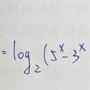 = log₂ (5ˣ - 3ˣ